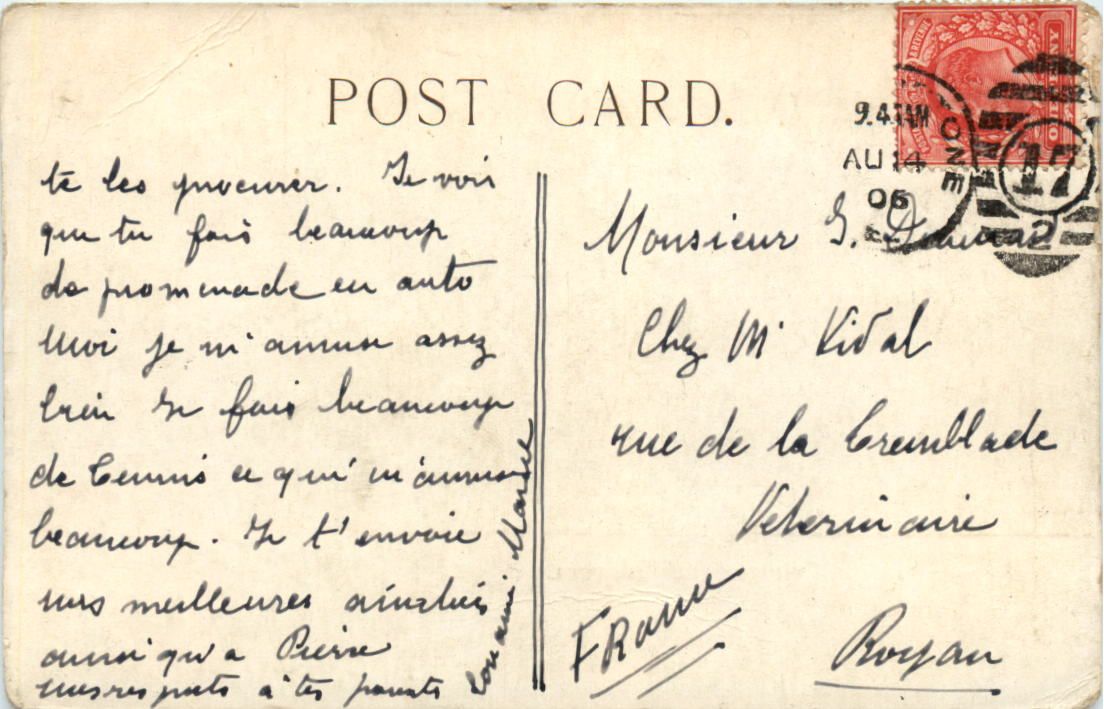 POST CARD.
te les procurer. Je vois
que tu fais beaucoup
de promenade en auto
Moi je m'amuse assez
bien Je fais beaucoup
de tennis ce qui m'amuse
beaucoup. Je t'envoie
mes meilleures amitiés
ainsi qu'a Pierre
mes respects à tes parents
ton ami
9.45AM
AU 14
06
17
2
Monsieur G.
Chez Mr Vidal
rue de la Tremblade
Veterinaire
Royan
France